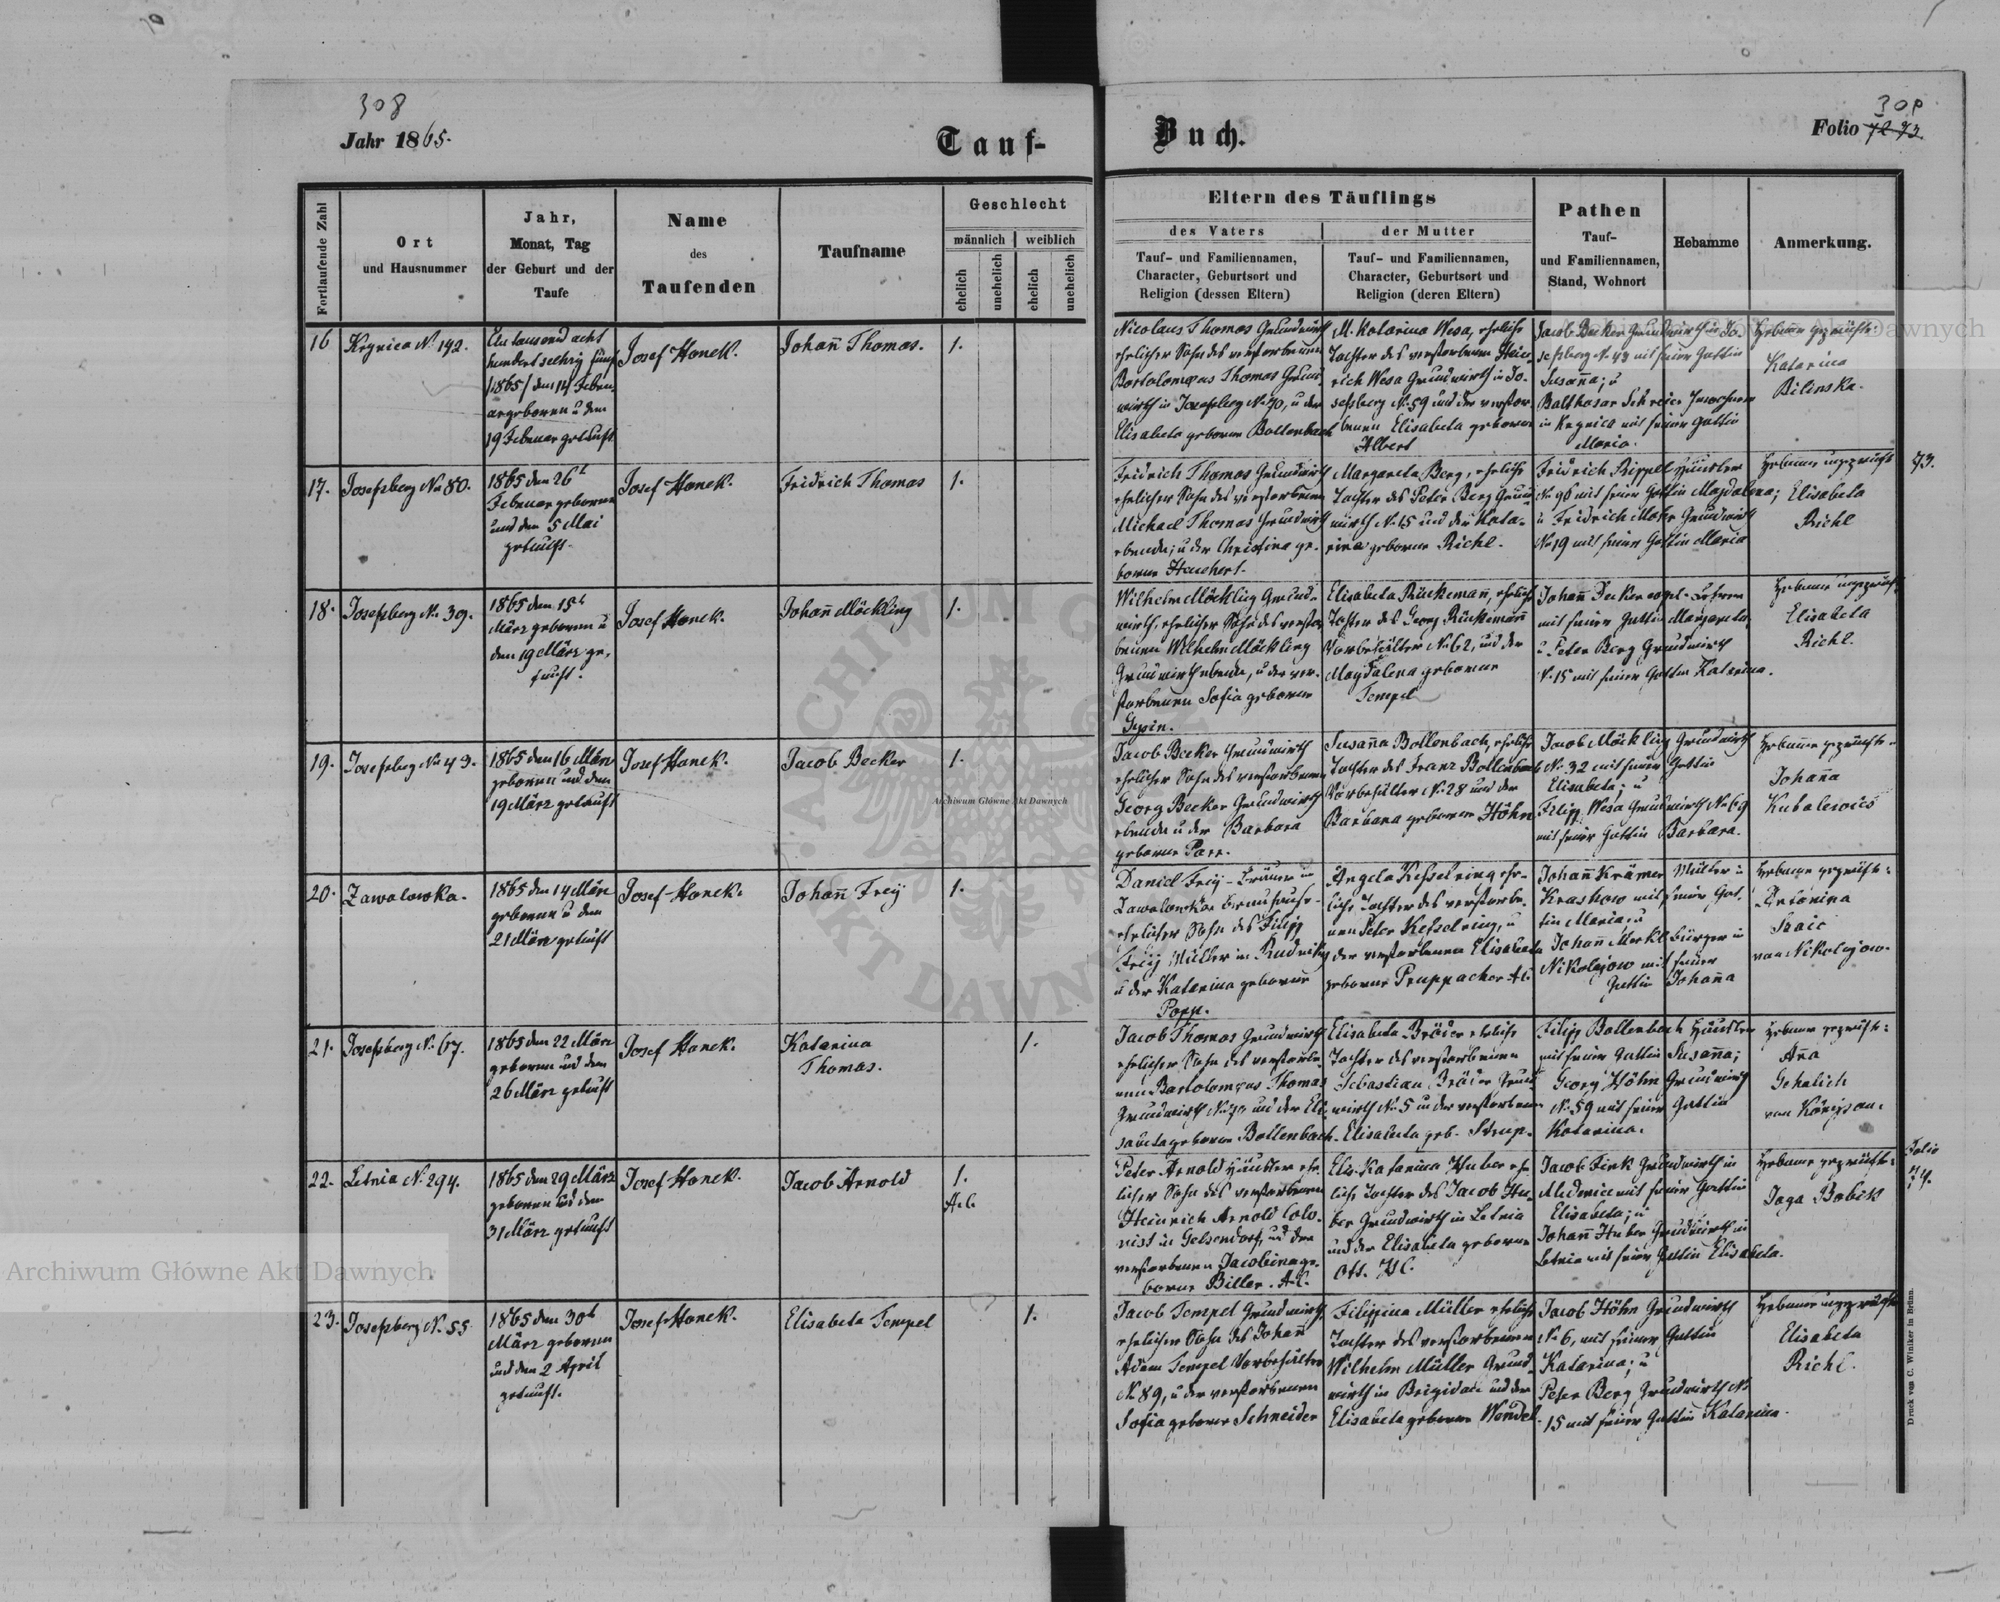 308
Jahr 1865.
Tauf-
Buch.
309
Folio 72 73
Fortlaufende Zahl
Ort
und Hausnummer
Jahr,
Monat, Tag
der Geburt und der
Taufe
Name
des
Taufenden
Taufname
Geschlecht
männlich
weiblich
ehelich
unehelich
ehelich
unehelich
Eltern des Täuflings
des Vaters
Tauf- und Familiennamen,
Character, Geburtsort und
Religion (dessen Eltern)
der Mutter
Tauf- und Familiennamen,
Character, Geburtsort und
Religion (deren Eltern)
Pathen
Tauf-
und Familiennamen,
Stand, Wohnort
Hebamme
Anmerkung.
16
Krynica N. 192.
Ein tausend acht
hundert sechzig fünf
/1865/ den 14 Febru-
ar geboren u den
19 Februar getauft
Josef Hanek.
Johan̄ Thomas.
1.
Nicolaus Thomas Grundwirth
ehelicher Sohn des verstorbenen
Bartolomeus Thomas Grund-
wirth in Josefsberg N. 70, u der
Elisabeta geborene Bollenbach
M. Katarina Wesa, eheliche
Tochter des verstorbenen Hein-
rich Wesa Grundwirth in Jo-
sefsberg N. 59 und der verstor-
benen Elisabeta geborene
Albert
Jacob Becker Grundwirth in Jo-
sefsberg N. 43 mit seiner Gattin
Susan̄a; u
Balthasar Schreier Inwohner
in Krynica mit seiner Gattin
Maria.
Hebame geprüfte:
Katarina
Bilinska.
17.
Josefsberg No 80.
1865 den 26t
Februar geboren
und den 5 Mai
getauft.
Josef Hanek.
Fridrich Thomas
1.
Fridrich Thomas Grundwirth
ehelicher Sohn des verstorbenen
Michael Thomas Grundwirth
ebenda; u der Christina ge-
borene Hauchert.
Margareta Berg, eheliche
Tochter des Peter Berg Grund-
wirth N. 15 und der Kata-
rina geborene Richl.
Fridrich Rippel Häusler
N. 96 mit seiner Gattin Magdalena;
u Fridrich Mohr Grundwirth
No 19 mit seiner Gattin Maria
Hebame ungeprüft
Elisabeta
Richl
73.
18.
Josefsberg No 39.
1865 den 15t
März geboren u
den 19 März ge-
tauft.
Josef Hanek.
Johan̄ Möckling
1.
Wilhelm Möckling Grund-
wirth, ehelicher Sohn des verstor-
benen Wilhelm Möckling
Grundwirth ebenda, u der ver-
storbenen Sofia geborene
Elisabeta Rückeman̄, eheliche
Tochter des Georg Rückeman̄
Vorbehälter N. 62, und der
Magdalena geborene
Tempel
Johan̄ Decker
mit seiner Gattin Margareta,
u Peter Berg Grundwirth
N. 15 mit seiner Gattin Katarina.
Hebame ungeprüft
Elisabeta
Richl.
19.
Josefsberg No 43.
1865 den 16 März
geboren und den
19 März getauft
Josef Hanek.
Jacob Becker
1.
Jacob Becker Grundwirth
ehelicher Sohn des verstorbenen
Georg Becker Grundwirth
ebenda u der Barbara
geborene Parr.
Susan̄a Bollenbach, eheliche
Tochter des Franz Bollenbach
Vorbehälter No 28 und der
Barbara geborene Höhn
Jacob Möckling Grundwirth
No 32 mit seiner Gattin
Elisabeta; u
Filipp Wesa Grundwirth No 69
mit seiner Gattin Barbara.
Hebame geprüfte.
Johan̄a
Kubalewics
20.
Zawalowka.
1865 den 14 März
geboren u den
21 März getauft
Josef Hanek.
Johan̄ Freÿ
1.
Daniel Freÿ
Zawalowka
ehelicher Sohn des Filipp
Freÿ Müller in Rudniky
u der Katarina geborene
Popp.
Angela Kesselring ehe-
liche Tochter des verstorbe-
nen Peter Kesselring, u
der verstorbenen Elisabeta
geborene Pruppacher A.C.
Johan̄ Krämer Müller in
Kraskow mit seiner Gat-
tin Maria; u
Johan̄ Merkl Bürger in
Nikolajow mit seiner
Gattin Johan̄a
Hebame geprüfte:
Antonina
von Nikolajow.
21.
Josefsberg N. 67.
1865 den 22 März
geboren und den
26 März getauft
Josef Hanek.
Katarina
Thomas.
1.
Jacob Thomas Grundwirth
ehelicher Sohn des verstorbe-
nen Bartolomeus Thomas
Grundwirth No 70 und der Eli-
sabeta geborene Bollenbach.
Elisabeta Bräder eheliche
Tochter des verstorbenen
Sebastian Bräder Grund-
wirth No 5 u der verstorbenen
Elisabeta geb. Strup.
Filipp Bollenbach Häusler
mit seiner Gattin Susan̄a;
Georg Höhn Grundwirth
No 59 mit seiner Gattin
Katarina.
Hebame geprüfte:
An̄a
Gehalich
von Königsau.
22.
Letnia N. 294.
1865 den 29 März
geboren und den
31 März getauft
Josef Hanek.
Jacob Arnold
1.
A.C.
Peter Arnold Häusler ehe-
licher Sohn des verstorbenen
Heinrich Arnold Colo-
nist in Gelsendorf, und der
verstorbenen Jacobina ge-
borene Biller. A.C.
Elis. Katarina Huber ehe-
liche Tochter des Jacob Hu-
ber Grundwirth in Letnia
und der Elisabeta geborene
Ott. H.C.
Jacob Fink Grundwirth in
Medenice mit seiner Gattin
Elisabeta; u
Johan̄ Huber Grundwirth in
Letnia mit seiner Gattin Elisabeta.
Hebame geprüfte:
Jaga Babik
Folio
74.
23.
Josefsberg N. 55
1865 den 30t
März geboren
und den 2 April
getauft.
Josef Hanek.
Elisabeta Tempel
1.
Jacob Tempel Grundwirth,
ehelicher Sohn des Johan̄
Adam Tempel Vorbehälter
No 89, u der verstorbenen
Sofia geborene Schneider
Filippina Müller eheliche
Tochter des verstorbenen
Wilhelm Müller Grund-
wirth in Brigidau und der
Elisabeta geborene Wendel.
Jacob Höhn Grundwirth
No 6, mit seiner Gattin
Katarina; u
Peter Berg Grundwirth No
15 mit seiner Gattin Katarina.
Hebame ungeprüfte
Elisabeta
Richl.
Druck von C. Winiker in Brünn.
Archiwum Główne Akt Dawnych
Archiwum Główne Akt Dawnych
Archiwum Główne Akt Dawnych